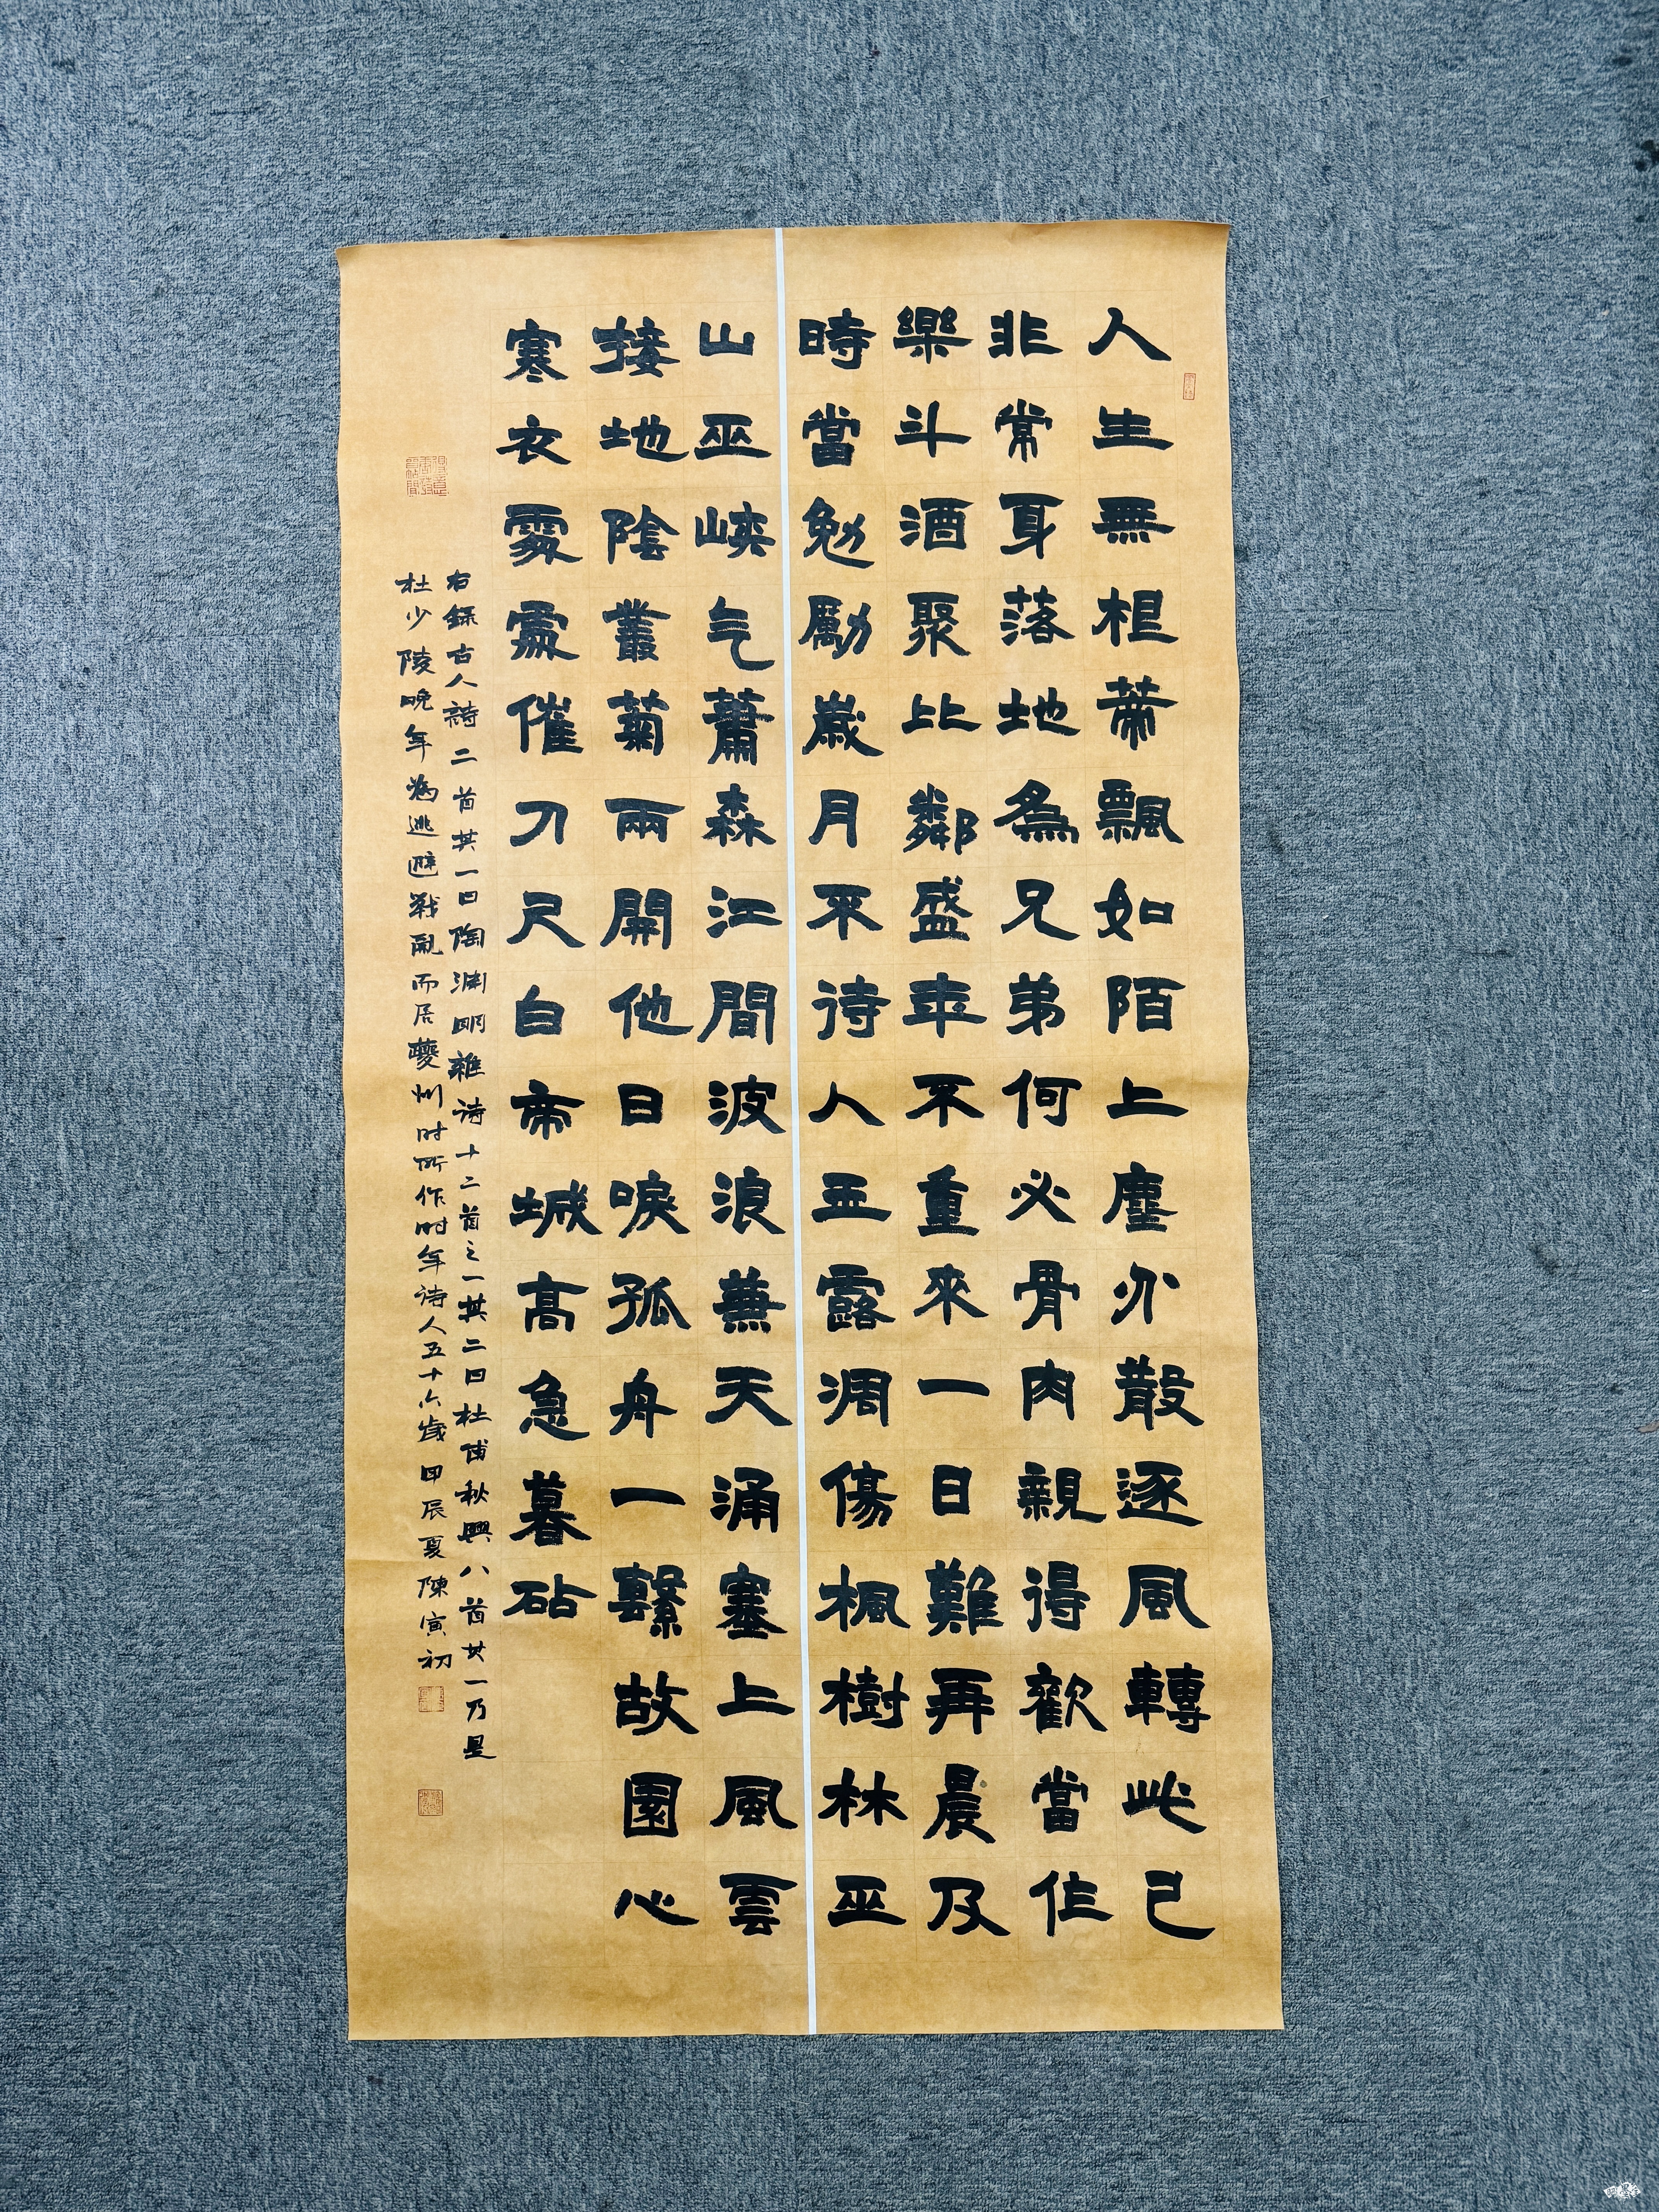 人生無根蒂飄如陌上塵分散逐風轉此已
非常身落地為兄弟何必骨肉親得歡當作
樂斗酒聚比鄰盛年不重來一日難再晨及
時當勉勵歲月不待人玉露凋傷楓樹林巫
山巫峽气蕭森江間波浪兼天涌塞上風雲
接地陰叢菊兩開他日淚孤舟一繫故園心
寒衣處處催刀尺白帝城高急暮砧
右録古人詩二首其一曰陶淵明雜诗十二首之一其二曰杜甫秋興八首其一乃是
杜少陵晚年為逃避戰亂而居夔州时所作时年诗人五十六歲甲辰夏陳寅初